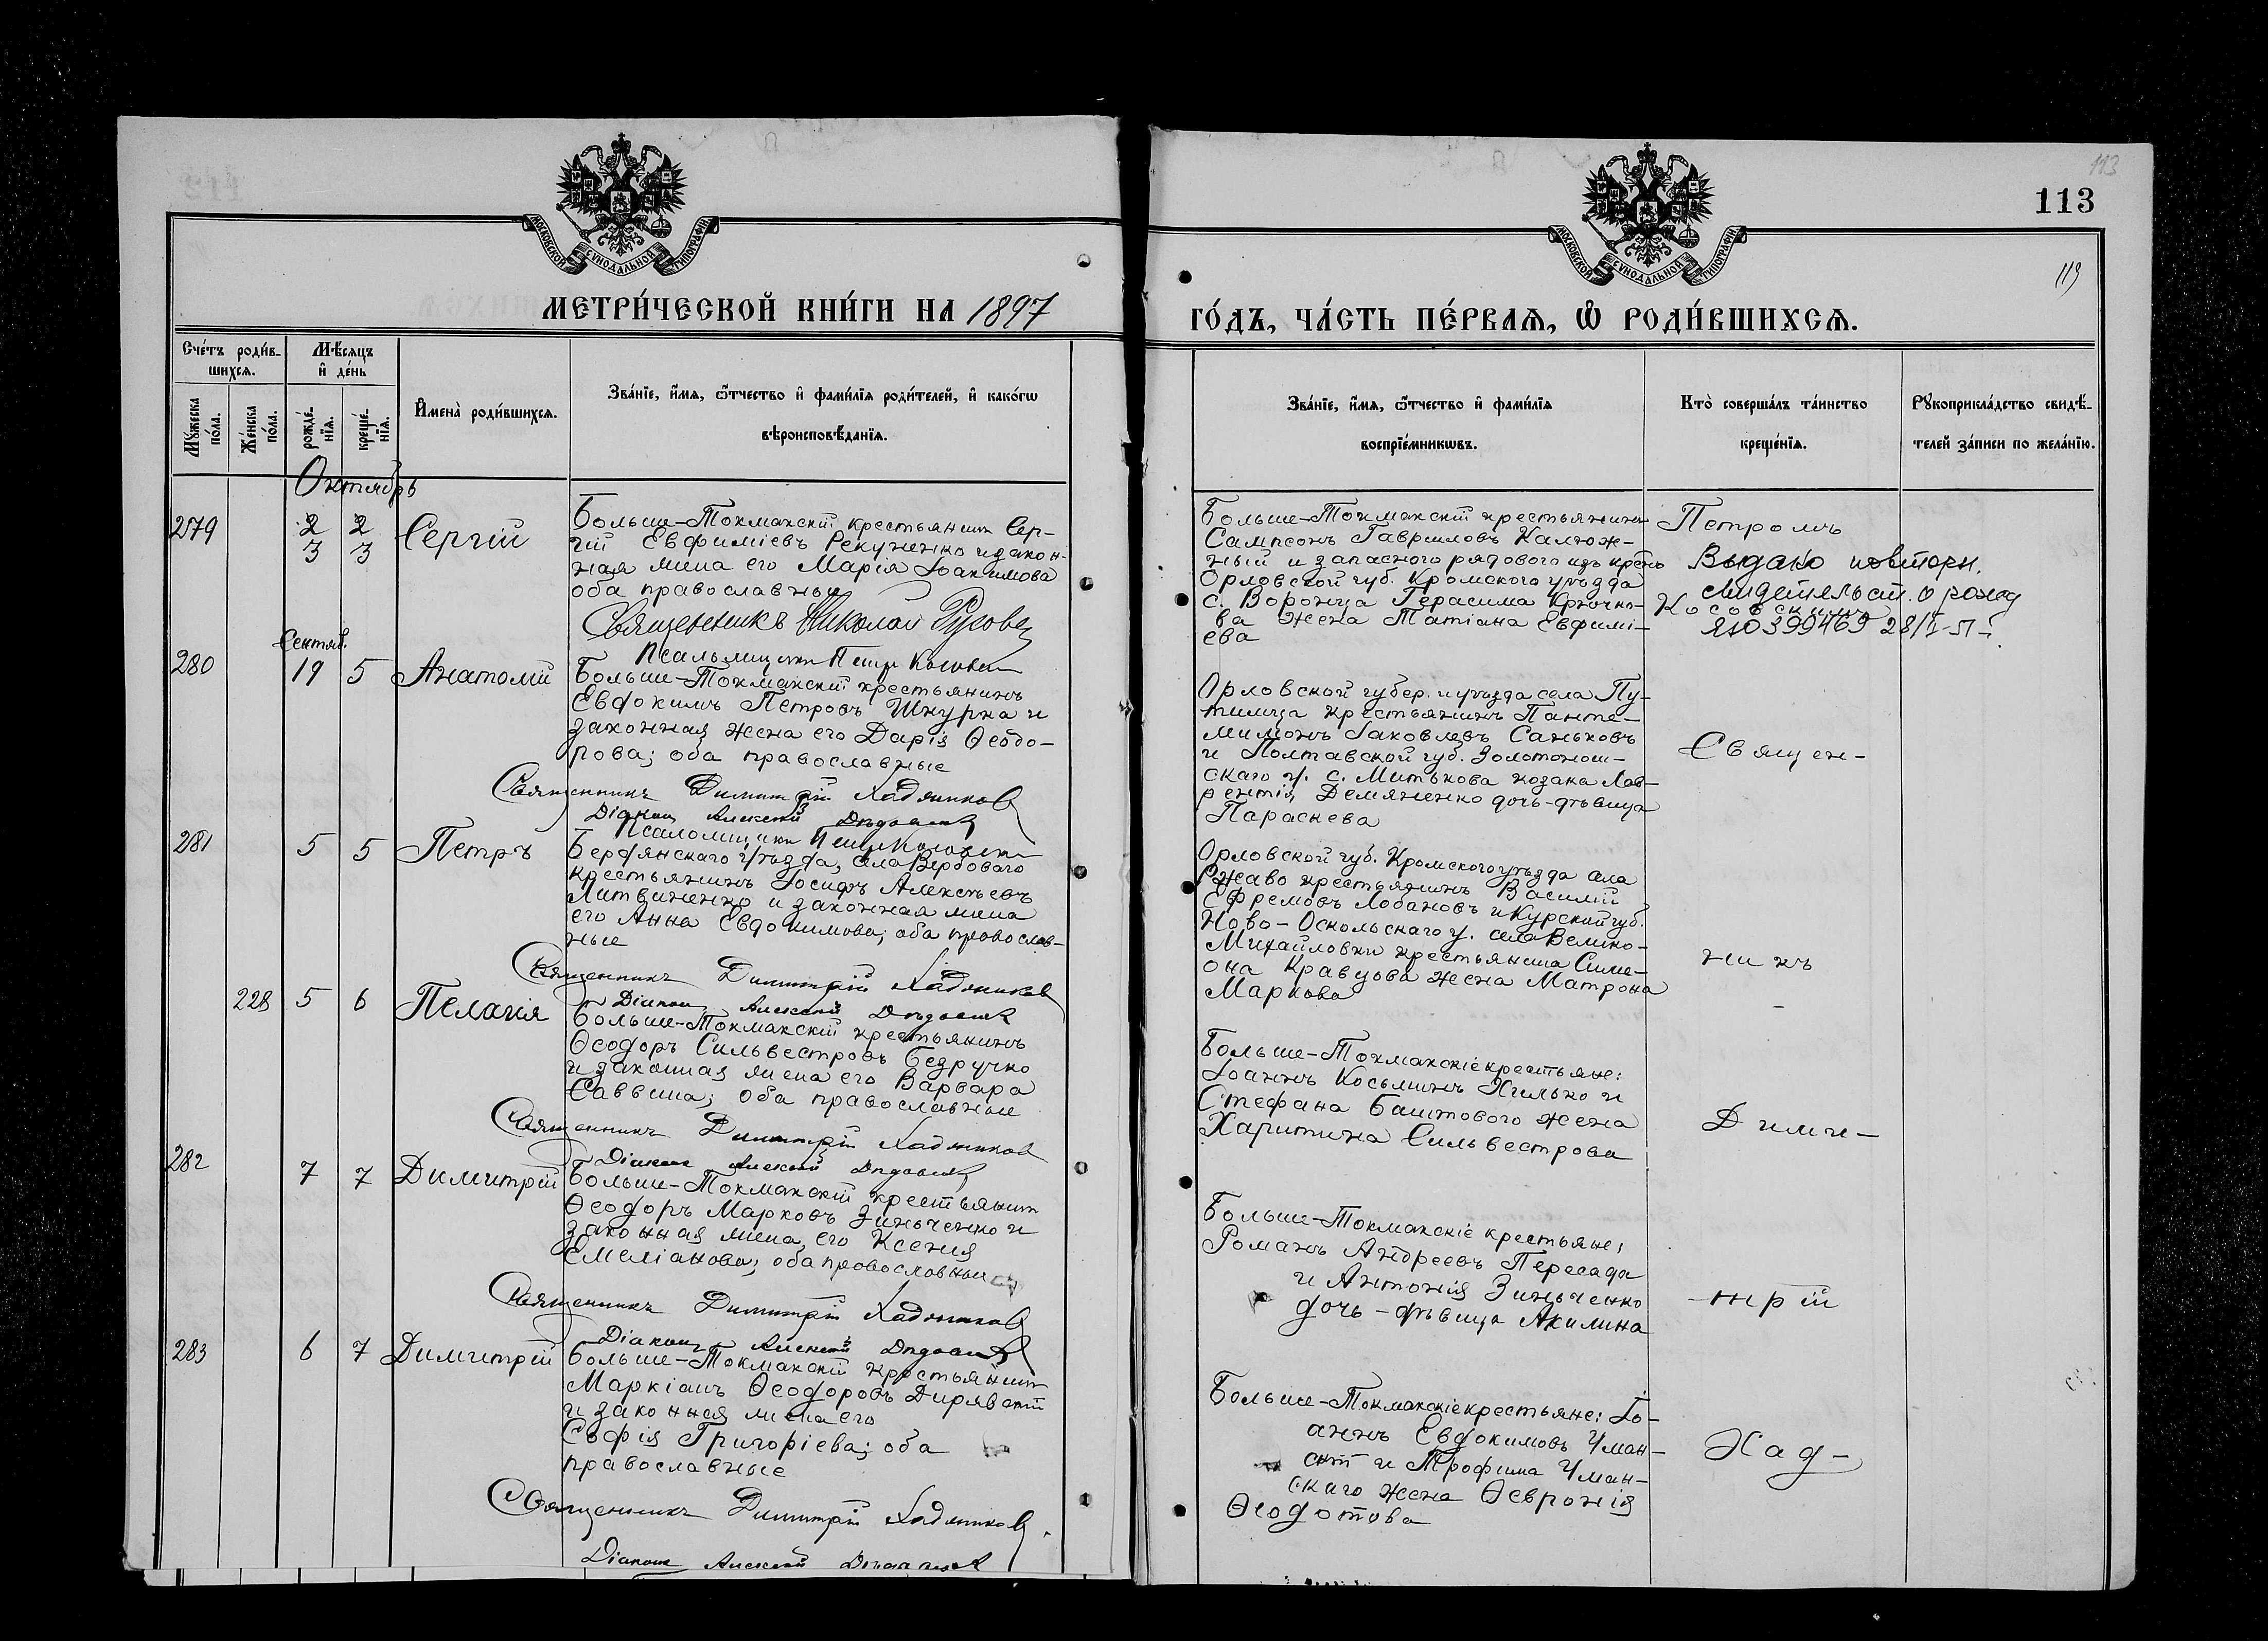 113
113
119
МОСКОВСКОЙ СѴНОДАЛЬНОЙ ТИПОГРАФІИ
МОСКОВСКОЙ СѴНОДАЛЬНОЙ ТИПОГРАФІИ
МЕТРИ́ЧЕСКОЙ КНИ́ГИ НА 1897
ГО́ДЪ, ЧА́СТЬ ПЕ́РВАѦ, Ѡ РОДИ́ВШИХСѦ.
Сче́тъ роди́в-
шихсѧ.
Мꙋ́жеска по́ла.
Же́нска по́ла.
Мѣ́сѧцъ
и҆ де́нь
рожде́-
нїѧ.
креще́-
нїѧ.
И҆мена̀ роди́вшихсѧ.
Зва́нїе, и҆́мѧ, ѻ҆́тчество и҆ фами́лїѧ роди́телей, и҆ како́гѡ
вѣроисповѣ́данїѧ.
Зва́нїе, и҆́мѧ, ѻ҆́тчество и҆ фами́лїѧ
воспрїе́мникѡвъ.
Кто̀ соверша́лъ та́инство
креще́нїѧ.
Рꙋкоприкла́дство свидѣ́-
телей за́писи по жела́нїю.
Октябрь
279
2 2
3 3
Сергій
Больше-Токмакскій крестьянинъ Сер-
гій Евфиміевъ Рекуненко и закон-
ная жена его Марія Іоакимова
оба православные
Священникъ Николай
Псаломщикъ Петръ Косовскій
Больше-Токмакскій крестьянинъ
Сампсонъ Гавриловъ Калюж-
ный и запасного рядового изъ крест.
Орловской губ. Кромского уѣзда
с. Воронца Герасима Крючко-
ва жена Татіана Евфимі-
ева
Петромъ
Выдано повторн.
свидетельст. о рожд
Косовскимъ
ЯЮ 399469 28/I
Сентяб.
280
19 5
Анатолій
Больше-Токмакскій крестьянинъ
Евдокимъ Петровъ Шкурка и
законная жена его Дарія Ѳеодо-
рова; оба православные
Священникъ Димитрій Хаджиновъ
Діаконъ Алексій
Псаломщикъ Петръ Косовскій
Орловской губер. и уѣзда села Пу-
тимца крестьянинъ Панте-
лимонъ Іаковлевъ Саньковъ
и Полтавской губ. Золотонош-
скаго у. с. Митькова козака Лав-
рентія Демяненко дочь-дѣвица
Параскева
Священ-
281
5 5
Петръ
Бердянскаго уѣзда, села Вербоваго
крестьянинъ Іосифъ Алексѣевъ
Литвиненко и законная жена
его Анна Евдокимова; оба православ-
ные
Священникъ Димитрій Хаджиновъ
Діаконъ Алексій
Орловской губ. Кромского уѣзда села
Ржаво крестьянинъ Василій
Ефремовъ Лобановъ и Курской губ.
Ново-Оскольскаго у. села Велико-
Михайловки крестьянина Симе-
она Кравцова жена Матрона
Маркова
никъ
228
5 6
Пелагія
Больше-Токмакскій крестьянинъ
Ѳеодоръ Сильвестровъ Безручко
и законная жена его Варвара
Саввина; оба православные
Священникъ Димитрій Хаджиновъ
Діаконъ Алексій
Больше-Токмакскіе крестьяне:
Іоаннъ Косьминъ Хилько и
Стефана Баштового жена
Харитина Сильвестрова
Дими-
282
7 7
Димитрій
Больше-Токмакскій крестьянинъ
Ѳеодоръ Марковъ Зинченко и
законная жена его Ксенія
Емеліанова; оба православные
Священникъ Димитрій Хаджиновъ
Діаконъ Алексій
Больше-Токмакскіе крестьяне:
Романъ Андреевъ Пересада
и Антонія Зиньченко
дочь-дѣвица Акилина
-трій
283
6 7
Димитрій
Больше-Токмакскій крестьянинъ
Маркіанъ Ѳеодоровъ Дирявскій
и законная жена его
Софія Григоріева; оба
православные
Священникъ Димитрій Хаджиновъ
Діаконъ Алексій
Больше-Токмакскіе крестьяне: Іо-
аннъ Евдокимовъ Уман-
скій и Трофима Уман-
скаго жена Ѳевронія
Ѳеодотова
Хад-